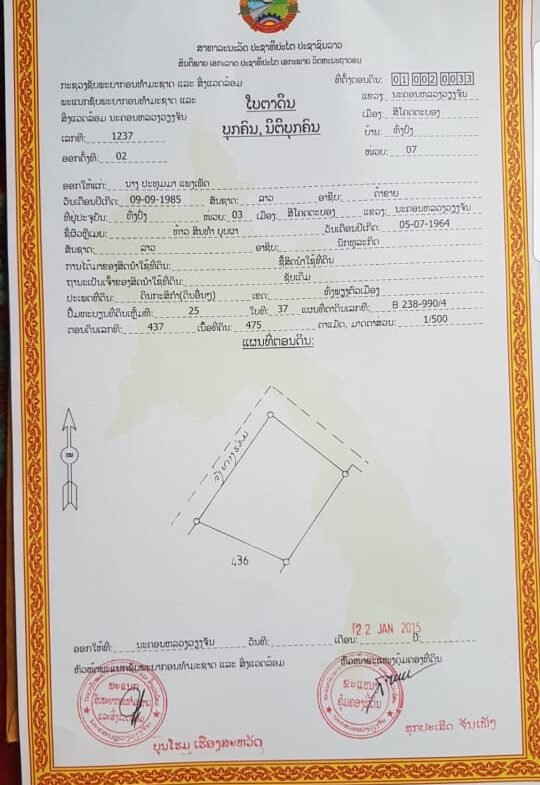 ສາທາລະນະລັດ ປະຊາທິປະໄຕ ປະຊາຊົນລາວ
ສັນຕິພາບ ເອກະລາດ ປະຊາທິປະໄຕ ເອກະພາບ ວັດທະນະຖາວອນ
ກະຊວງຊັບພະຍາກອນທຳມະຊາດ ແລະ ສິ່ງແວດລ້ອມ
ທີ່ຕັ້ງຕອນດິນ: 01 002 0033
ພະແນກຊັບພະຍາກອນທຳມະຊາດ ແລະ
ແຂວງ: ນະຄອນຫລວງວຽງຈັນ
ສິ່ງແວດລ້ອມ ນະຄອນຫລວງວຽງຈັນ
ໃບຕາດິນ
ເມືອງ: ສີໂຄດຕະບອງ
ບຸກຄົນ, ນິຕິບຸກຄົນ
ເລກທີ: 1237
ບ້ານ: ທົ່ງປົ່ງ
ອອກຄັ້ງທີ: 02
ໜ່ວຍ: 07
ອອກໃຫ້ແກ່: ນາງ ປະທຸມມາ ແພງເພັດ
ວັນເດືອນປີເກີດ: 09-09-1985 ສັນຊາດ: ລາວ ອາຊີບ: ຄ້າຂາຍ
ທີ່ຢູ່ປະຈຸບັນ: ທົ່ງປົ່ງ ໜ່ວຍ: 03 ເມືອງ: ສີໂຄດຕະບອງ ແຂວງ: ນະຄອນຫລວງວຽງຈັນ
ຊື່ຜົວຫຼືເມຍ: ທ້າວ ສິນທຳ ບຸບຜາ ວັນເດືອນປີເກີດ: 05-07-1964
ສັນຊາດ: ລາວ ອາຊີບ: ນັກທຸລະກິດ
ການໄດ້ມາຂອງສິດນຳໃຊ້ທີ່ດິນ: ຊື້ສິດນຳໃຊ້ທີ່ດິນ
ຖານະເປັນເຈົ້າຂອງສິດນຳໃຊ້ທີ່ດິນ: ຊັບເດີມ
ປະເພດທີ່ດິນ: ດິນກະສິກຳ(ດິນອື່ນໆ) ເຂດ: ທົ່ງພຽງຕົວເມືອງ
ປຶ້ມທະບຽນທີ່ດິນເຫຼັ້ມທີ: 25 ໃບທີ: 37 ແຜນທີ່ຕາດິນເລກທີ: B 238-990/4
ຕອນດິນເລກທີ: 437 ເນື້ອທີ່ດິນ: 475 ຕາແມັດ, ມາດຕາສ່ວນ: 1/500
ແຜນທີ່ຕອນດິນ:
436
12 2 JAN 2015
ອອກໃຫ້ທີ່: ນະຄອນຫລວງວຽງຈັນ ວັນທີ: ເດືອນ: ປີ:
ຫົວໜ້າພະແນກຊັບພະຍາກອນທຳມະຊາດ ແລະ ສິ່ງແວດລ້ອມ
ຫົວໜ້າຂະແໜງຄຸ້ມຄອງທີ່ດິນ
ພະແນກ
ຊັບພະຍາກອນທຳມະຊາດ
ແລະສິ່ງແວດລ້ອມ
ນະຄອນຫລວງວຽງຈັນ
ຂະແໜງ
ຄຸ້ມຄອງທີ່ດິນ
ບຸນໂຮມ ເຮືອງສະຫວັດ
ທຸກປະເສີດ ຈັນເພັງ